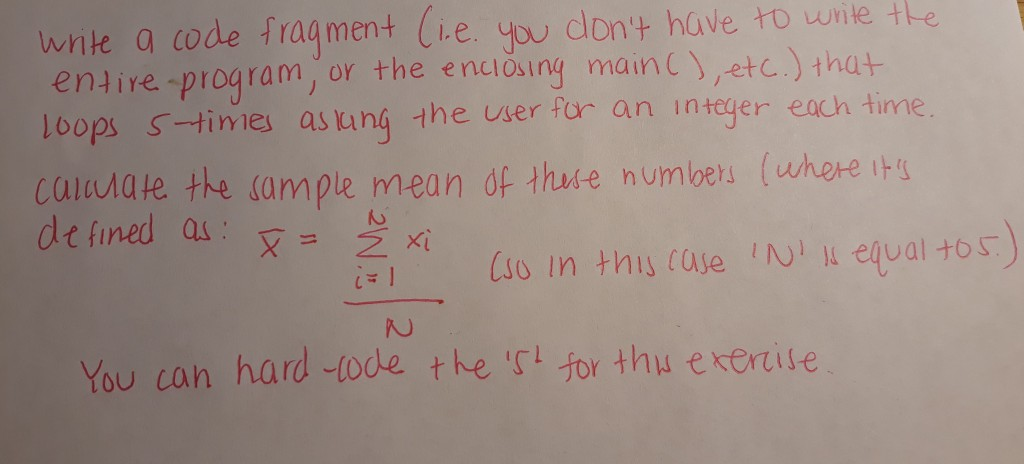 write a code fragment (i.e. you don't have to write the
entire program, or the enclosing main(), etc.) that
loops 5-times asking the user for an integer each time.
calculate the sample mean of these numbers (where it's
defined as: x̄ = N Σ i=1 xi / N (so in this case 'N' is equal to 5.)
You can hard-code the '5' for this exercise.